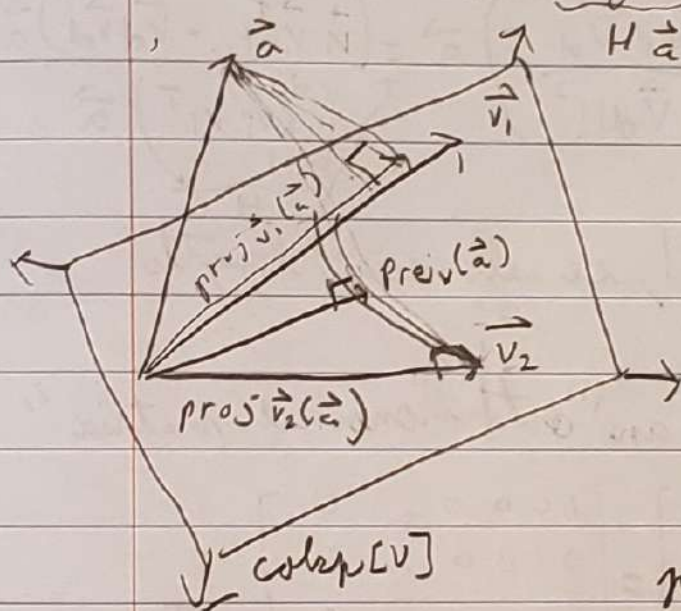 H a⃗
a⃗
v⃗₁
proj v⃗₁(a⃗)
projᵥ(a⃗)
v⃗₂
proj v⃗₂(a⃗)
colsp[V]